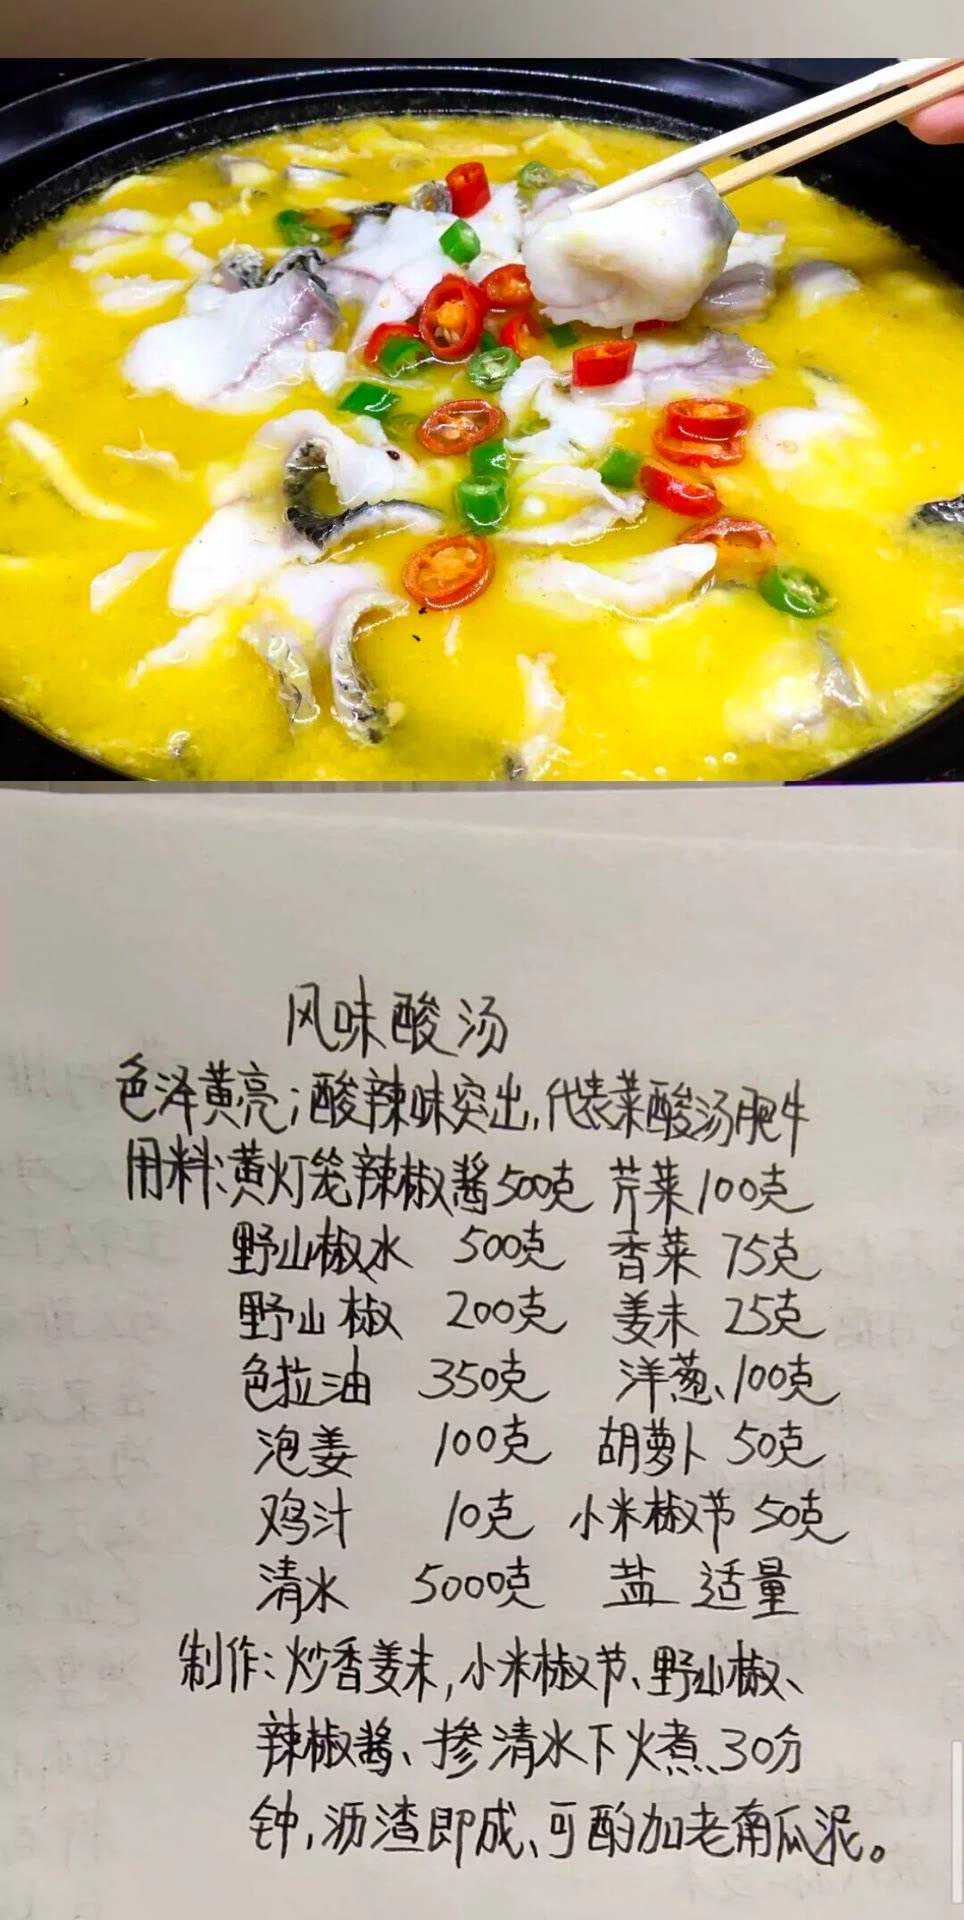 风味酸汤
色泽黄亮;酸辣味突出,代表菜酸汤肥牛
用料:黄灯笼辣椒酱500克 芹菜100克
野山椒水 500克 香菜 75克
野山椒 200克 姜末 25克
色拉油 350克 洋葱、100克
泡姜 100克 胡萝卜 50克
鸡汁 10克 小米椒节 50克
清水 5000克 盐 适量
制作:炒香姜末,小米椒节、野山椒、
辣椒酱、掺清水下火煮、30分
钟,沥渣即成、可酌加老南瓜泥。